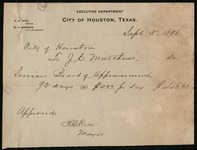 EXECUTIVE DEPARTMENT
CITY OF HOUSTON, TEXAS.
Sept 5. 1896
City of Houston
To J. C. Matthews Dr
Services Board of Appraisement
90 days @ per day
Approved
H B Rice
Mayor